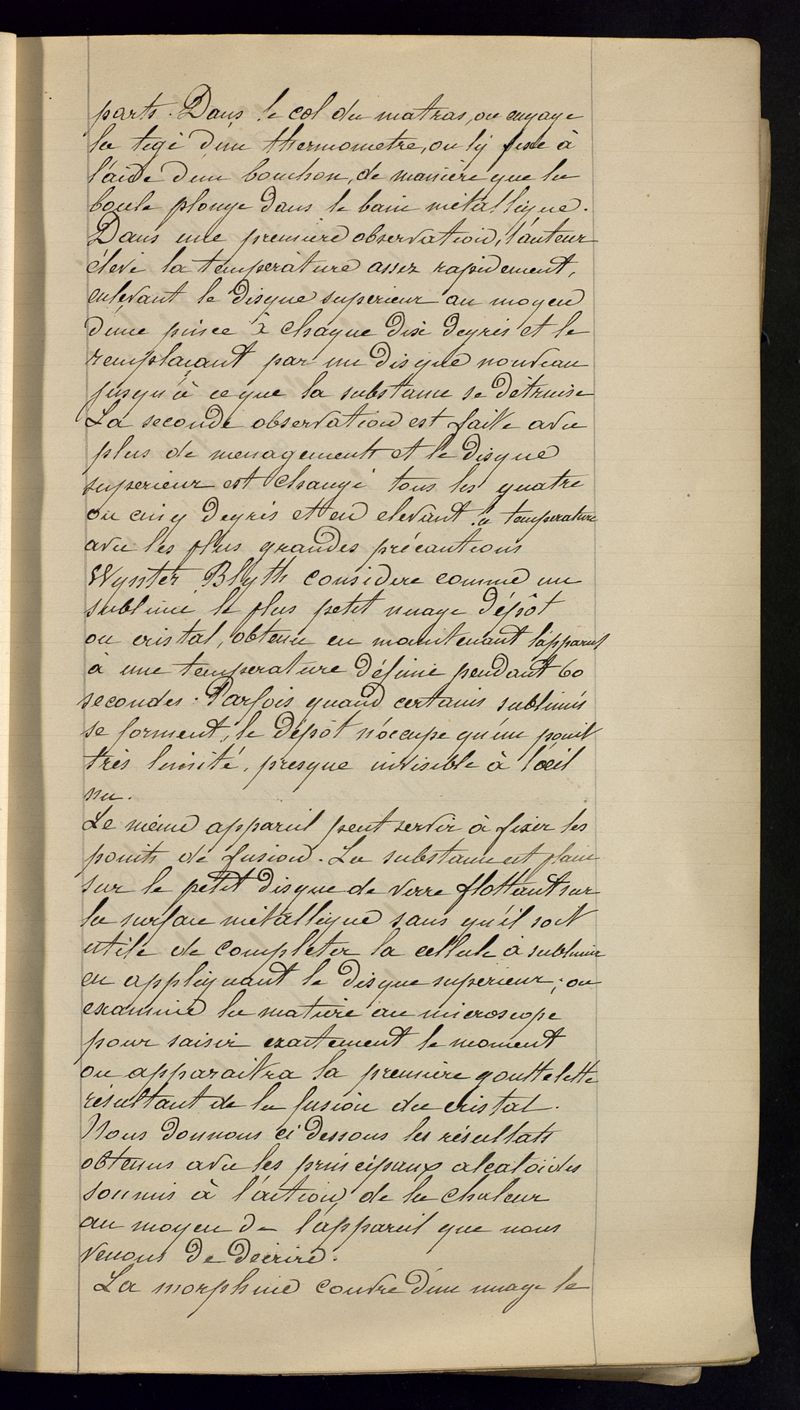 parts. Dans le col du matras, on engage
la tige d'un thermometre, on l'y fixe à
l'aide d'un bouchon, de manière que la
boule plonge dans le bain métallique.
Dans une première observation, l'auteur
élève la temperature assez rapidement,
enlevant le disque superieur au moyen
d'une pince à chaque dix degrés et le
remplaçant par un disque nouveau
jusqu'à ce que la substance se détruise
La seconde observation est faite avec
plus de menagements et le disque
superieur est changé tous les quatre
ou cinq degrés et en elevant la temperature
avec les plus grandes précautions
Wynter Blyth considere comme un
sublimé le plus petit nuage dépôt
ou cristal, obtenu en maintenant l'appareil
à une temperature définie pendant 60
secondes. Parfois quand certains sublimés
se forment, le dépôt n'occupe qu'un point
très limité, presque invisible à l'œil
nu.
Le même appareil peut servir à fixer les
points de fusion. La substance est placée
sur le petit disque de verre flottant sur
la surface métallique sans qu'il soit
utile de completer la cellule à sublimer
en appliquant le disque superieur; on
examine la matière au microscope
pour saisir exactement le moment
ou apparaitra la première gouttelette
résultant de la fusion du cristal.
Nous donnons ci dessous les résultats
obtenus avec les principaux alcaloïdes
soumis à l'action de la chaleur
au moyen de l'appareil que nous
venons de décrire.
La morphine couvre d'un nuage le